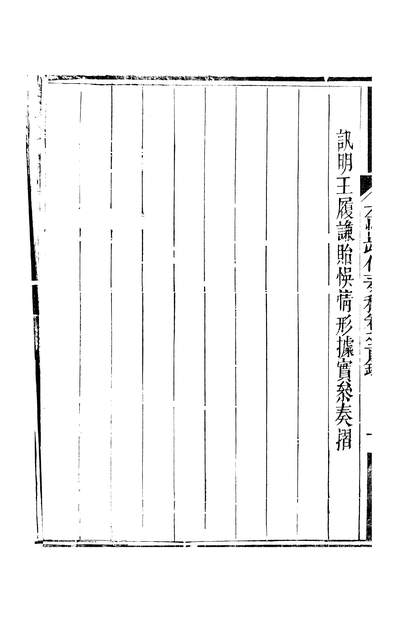 訊明王履謙貽悞情形據實叅奏摺